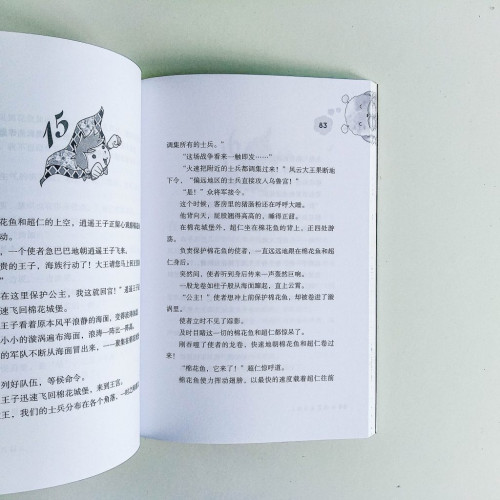 15
花鱼和超仁的上空，逍遥王子正留心
动。
，一个使者急巴巴地朝逍遥王子飞来。
贵的王子，海族行动了！大王请您马上
在这里保护公主，我这就回宫！”逍遥王子
速飞回棉花城堡。
王子看着原本风平浪静的海面，变得波涛
小小的漩涡遍布海面，浪涛一
的军队不断从海面冒出来，
列好队伍，等候命令。
王子迅速飞回棉花城堡，来到王宫。
王，我们的士兵分布在各个角落，
63
调集所有的士兵。
“这场战争看来一触即发……”
“火速把附近的士兵都调集过来！”风云大王果断地
下令，“偏远地区的士兵直接攻入乌鲁宫！”
“是！”众将军接令。
这个时候，客房里的猪肠粉还在呼呼大睡。
他背向天，屁股翘得高高的，睡得正甜。
在棉花城堡外，超仁坐在棉花鱼的背上，正四处游
荡。
负责保护棉花鱼的使者，一直远远地跟在棉花鱼和超
仁身后。
突然间，使者听到身后传来一声轰然巨响。
一股龙卷如柱子般从海面蹿起，直上云霄。
“公主！”使者想冲上前保护棉花鱼，却被卷进了漩
涡里。
使者立时不见了踪影。
及时目睹这一切的棉花鱼和超仁都惊呆了。
刚吞噬了使者的龙卷，快速地朝棉花鱼和超仁卷
过来！
“棉花鱼，它来了！”超仁惊呼道。
棉花鱼使力挥动翅膀，以最快的速度载着超仁往前